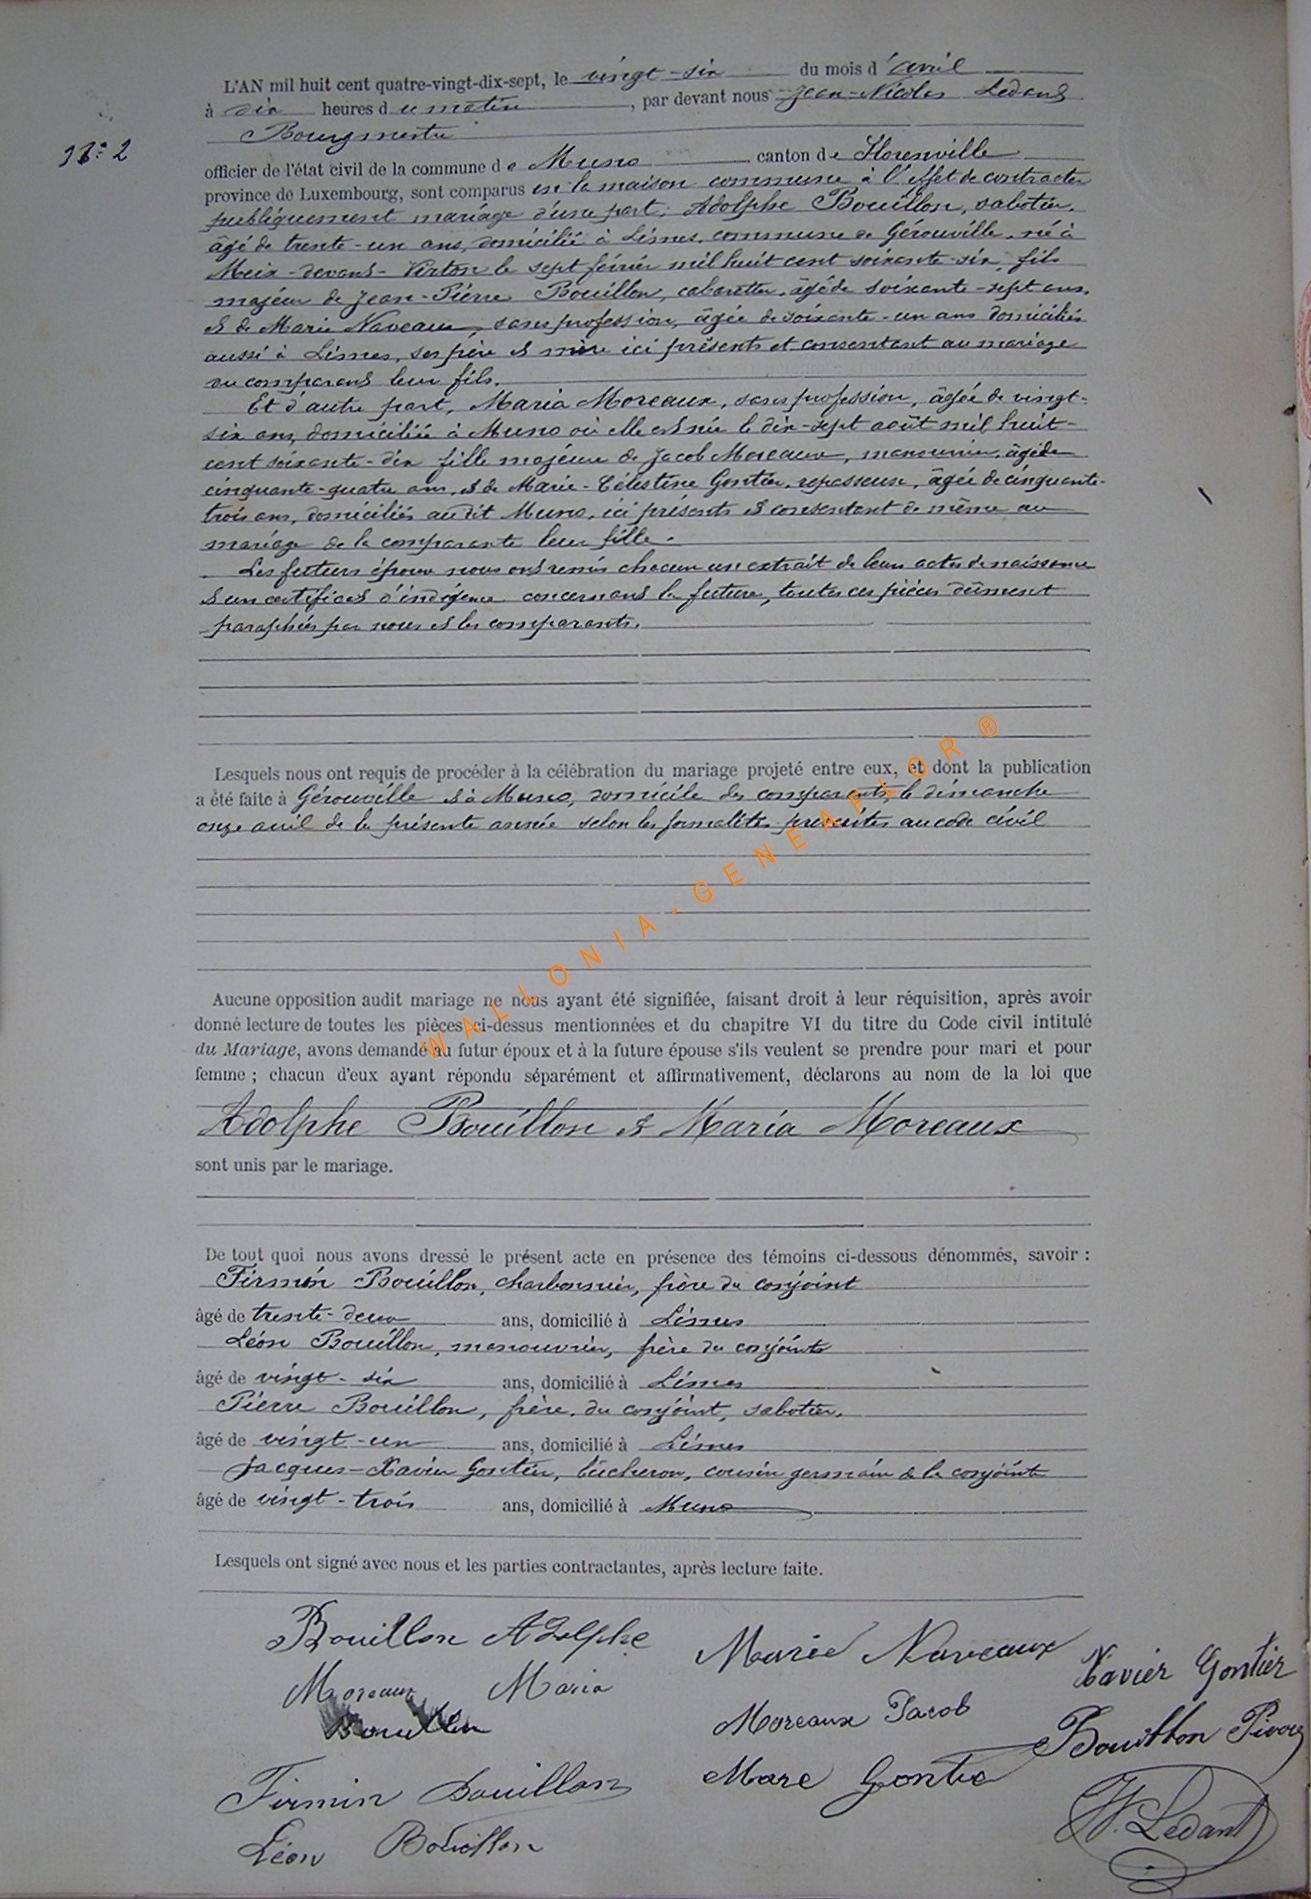 L'AN mil huit cent quatre-vingt-dix-sept, le vingt-six du mois d'avril
à dix heures du matin, par devant nous Jean-Nicolas Ledant
Bourgmestre
N° 2
officier de l'état civil de la commune de Muno canton de Florenville
province de Luxembourg, sont comparus en la maison commune à l'effet de contracter
publiquement mariage d'une part: Adolphe Bouillon, sabotier,
âgé de trente-un ans, domicilié à Limes, commune de Gérouville, né à
Meix-devant-Virton le sept février mil huit cent soixante-six, fils
majeur de Jean-Pierre Bouillon, cabaretier, âgé de soixante-sept ans,
et de Marie Naveaux, sans profession, âgée de soixante-un ans domiciliés
aussi à Limes, ses père et mère ici présents et consentant au mariage
du comparant leur fils.
Et d'autre part, Maria Moreaux, sans profession, âgée de vingt-
six ans, domiciliée à Muno où elle est née le dix-sept août mil huit-
cent soixante-dix fille majeure de Jacob Moreaux, manouvrier, âgé de
cinquante-quatre ans, et de Marie-Célestine Gontier, repasseuse, âgée de cinquante-
trois ans, domiciliés audit Muno, ici présents et consentant de même au
mariage de la comparante leur fille.
Les futurs époux nous ont remis chacun un extrait de leur acte de naissance
et un certificat d'indigence concernant la future, toutes ces pièces dûment
paraphées par nous et les comparants.
Lesquels nous ont requis de procéder à la célébration du mariage projeté entre eux, et dont la publication
a été faite à Gérouville et à Muno, domicile des comparants, le dimanche
onze avril de la présente année selon les formalités prescrites au code civil
WALLONIA-GENEAFLOR®
Aucune opposition audit mariage ne nous ayant été signifiée, faisant droit à leur réquisition, après avoir
donné lecture de toutes les pièces ci-dessus mentionnées et du chapitre VI du titre du Code civil intitulé
du Mariage, avons demandé au futur époux et à la future épouse s'ils veulent se prendre pour mari et pour
femme ; chacun d'eux ayant répondu séparément et affirmativement, déclarons au nom de la loi que
Adolphe Bouillon et Maria Moreaux
sont unis par le mariage.
De tout quoi nous avons dressé le présent acte en présence des témoins ci-dessous dénommés, savoir :
Firmin Bouillon, charbonnier, frère du conjoint
âgé de trente-deux ans, domicilié à Limes
Léon Bouillon, manouvrier, frère du conjoint
âgé de vingt-six ans, domicilié à Limes
Pierre Bouillon, frère du conjoint, sabotier,
âgé de vingt-un ans, domicilié à Limes
Jacques-Xavier Gontier, bûcheron, cousin germain de la conjointe
âgé de vingt-trois ans, domicilié à Muno
Lesquels ont signé avec nous et les parties contractantes, après lecture faite.
Bouillon Adolphe
Marie Naveaux
Xavier Gontier
Moreaux Maria
Bouillon
Moreaux Jacob
Bouillon Pierre
Firmin Bouillon
Mare Gontie
Léon Bouillon
N. Ledant